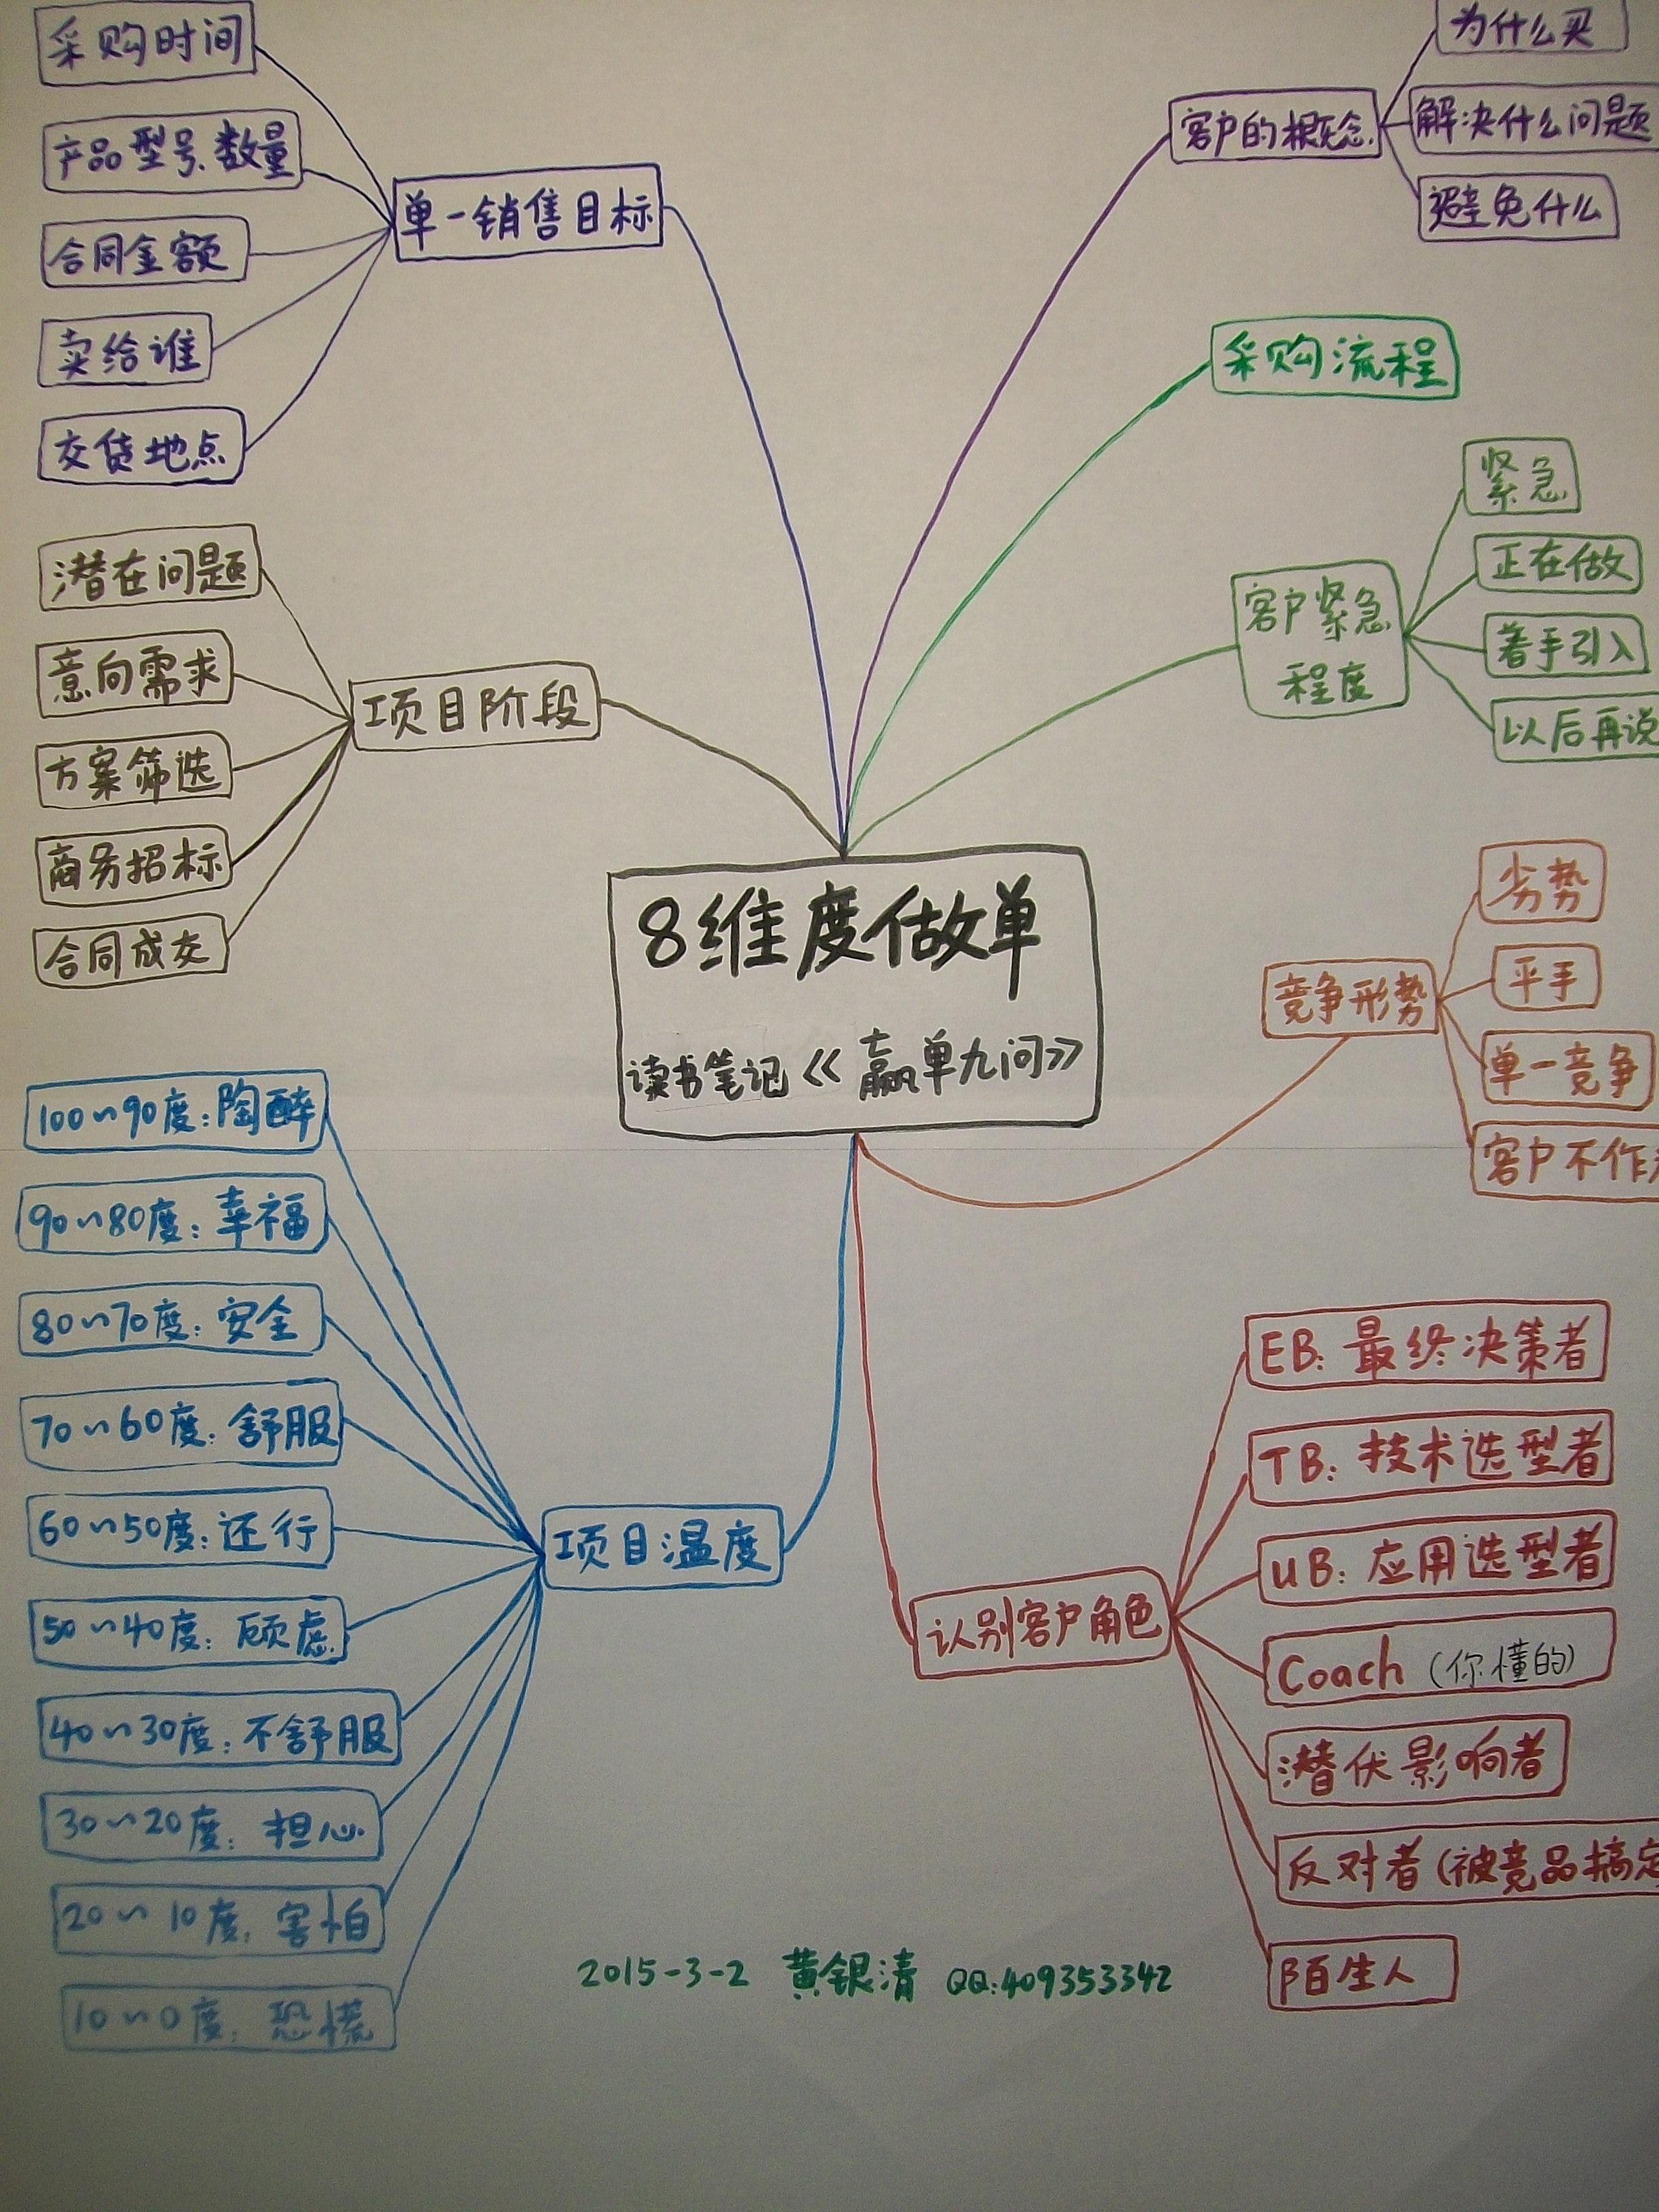 8维度做单
读书笔记《赢单九问》
单一销售目标
采购时间
产品型号、数量
合同金额
卖给谁
交货地点
项目阶段
潜在问题
意向需求
方案筛选
商务招标
合同成交
项目温度
100~90度:陶醉
90~80度:幸福
80~70度:安全
70~60度:舒服
60~50度:还行
50~40度:顾虑
40~30度:不舒服
30~20度:担心
20~10度:害怕
10~0度:恐慌
客户的概念
为什么买
解决什么问题
避免什么
采购流程
客户紧急
程度
紧急
正在做
着手引入
以后再说
竞争形势
劣势
平手
单一竞争
客户不作
认别客户角色
EB:最终决策者
TB:技术选型者
UB:应用选型者
Coach(你懂的)
潜伏影响者
反对者(被竞品搞定
陌生人
2015-3-2 黄银清 QQ:409353342